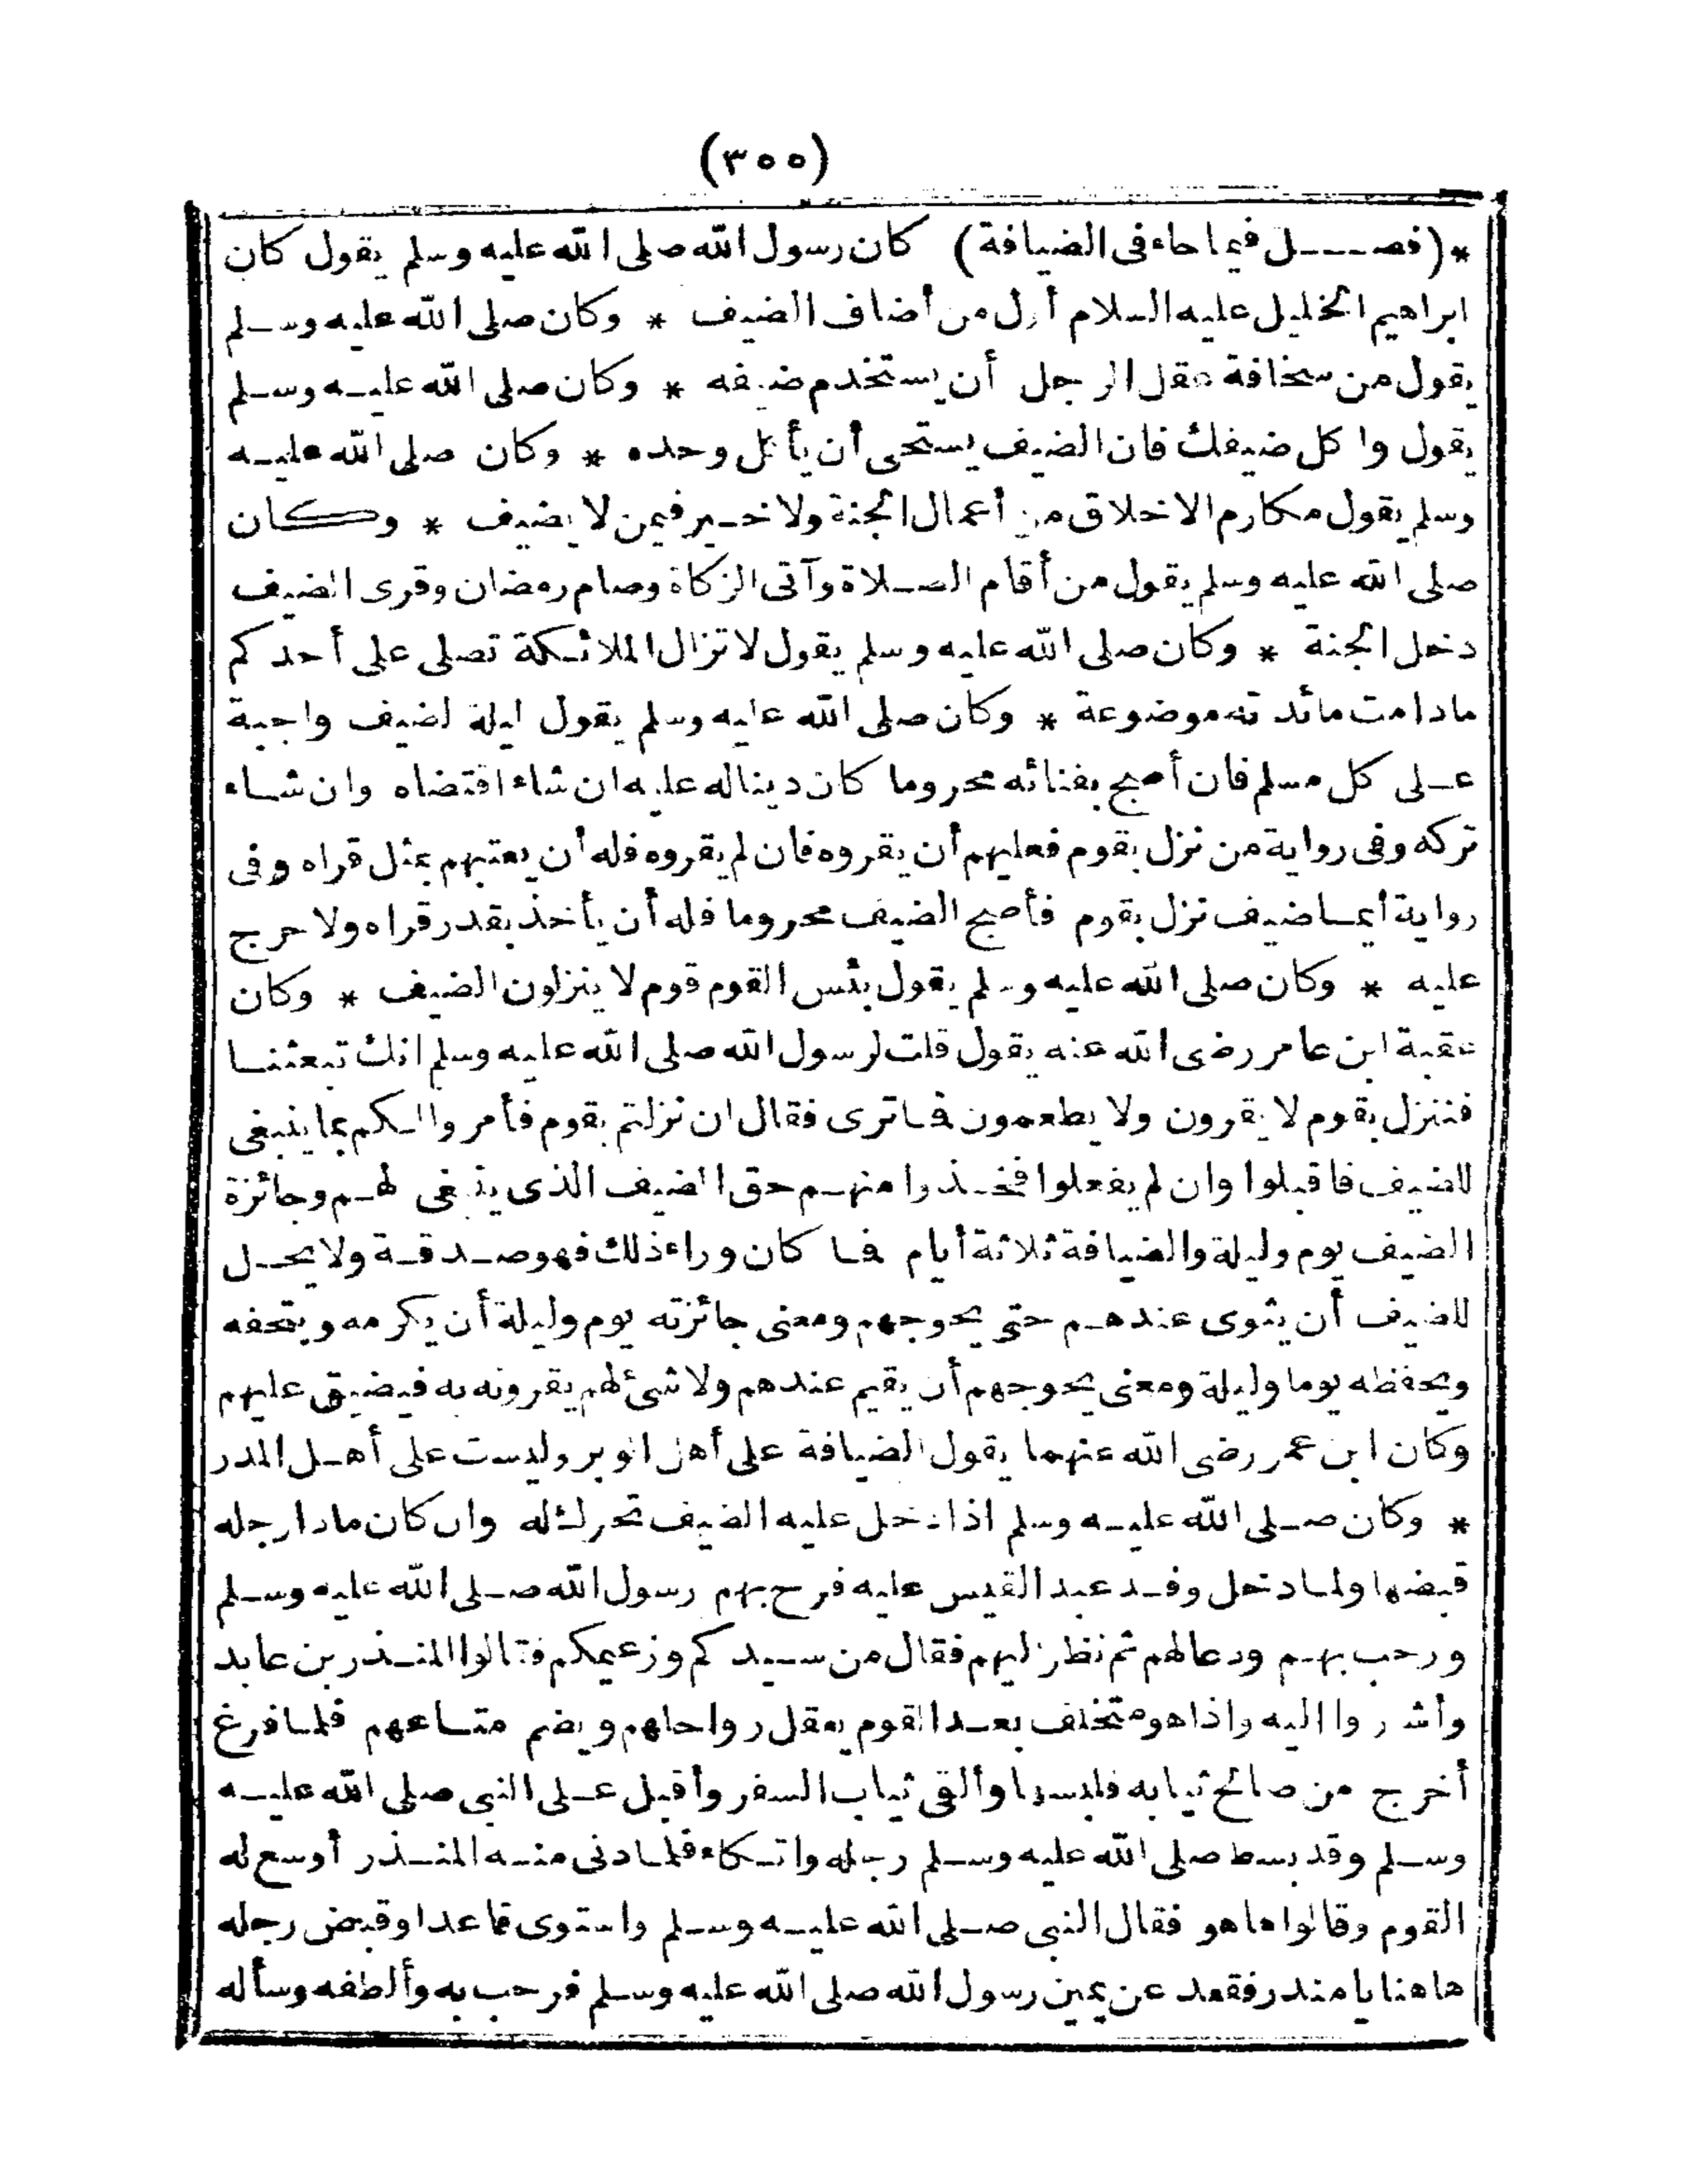 (٣٥٥)
*(فصــل فيما جاء فى الضيافة) كان رسول الله صلى الله عليه وسلم يقول كان
ابراهيم الخليل عليه السلام أول من أضاف الضيف * وكان صلى الله عليه وسلم
يقول من سخافة عقل الرجل أن يستخدم ضيفه * وكان صلى الله عليه وسلم
يقول وا كل ضيفك فان الضيف يستحى أن يأكل وحده * وكان صلى الله عليه
وسلم يقول مكارم الاخلاق من أعمال الجنة ولا خير فيمن لا يضيف * وكان
صلى الله عليه وسلم يقول من أقام الصلاة وآتى الزكاة وصام رمضان وقرى الضيف
دخل الجنة * وكان صلى الله عليه وسلم يقول لا تزال الملائكة تصلى على أحدكم
مادامت مائدته موضوعة * وكان صلى الله عليه وسلم يقول ليلة الضيف واجبة
على كل مسلم فان أصبح بفنائه محروما كان ديناله عليه ان شاء اقتضاه وان شاء
تركه وفى رواية من نزل بقوم فعليهم أن يقروه فان لم يقروه فله أن يعتبهم بمثل قراه وفى
رواية أيما ضيف نزل بقوم فأصبح الضيف محروما فله أن يأخذ بقدر قراه ولا حرج
عليه * وكان صلى الله عليه وسلم يقول بئس القوم قوم لا ينزلون الضيف * وكان
عقبة ابن عامر رضى الله عنه يقول قلت لرسول الله صلى الله عليه وسلم انك تبعثنا
فننزل بقوم لا يقرون ولا يطعمون فما ترى فقال ان نزلتم بقوم فأمروا لكم بما ينبغى
للضيف فاقبلوا وان لم يفعلوا فخذوا منهم حق الضيف الذى ينبغى لهم وجائزة
الضيف يوم وليلة والضيافة ثلاثة أيام فما كان وراء ذلك فهو صدقة ولا يحل
للضيف أن يثوى عندهم حتى يحوجهم ومعنى جائزته يوم وليلة أن يكرمه ويتحفه
ويحفظه يوما وليلة ومعنى يحوجهم أن يقيم عندهم ولا شئ لهم يقرونه به فيضيق عليهم
وكان ابن عمر رضى الله عنهما يقول الضيافة على أهل الوبر وليست على أهل المدر
* وكان صلى الله عليه وسلم اذا دخل عليه الضيف تحرك له وان كان مادا رجله
قبضها ولما دخل وفد عبد القيس عليه فرح بهم رسول الله صلى الله عليه وسلم
ورحب بهم ودعا لهم ثم نظر اليهم فقال من سيدكم وزعيمكم فقالوا المنذر بن عابد
وأشاروا اليه واذا هو متخلف بعد القوم يعقل رواحلهم ويضم متاعهم فلما فرغ
أخرج من صالح ثيابه فلبسها وألقى ثياب السفر وأقبل على النبى صلى الله عليه
وسلم وقد بسط صلى الله عليه وسلم رجله واتكاء فلما دنى منه المنذر أوسع له
القوم وقالوا ها هو فقال النبى صلى الله عليه وسلم واستوى قاعدا وقبض رجله
هاهنا يا منذر فقعد عن يمين رسول الله صلى الله عليه وسلم فرحب به وألطفه وسأله